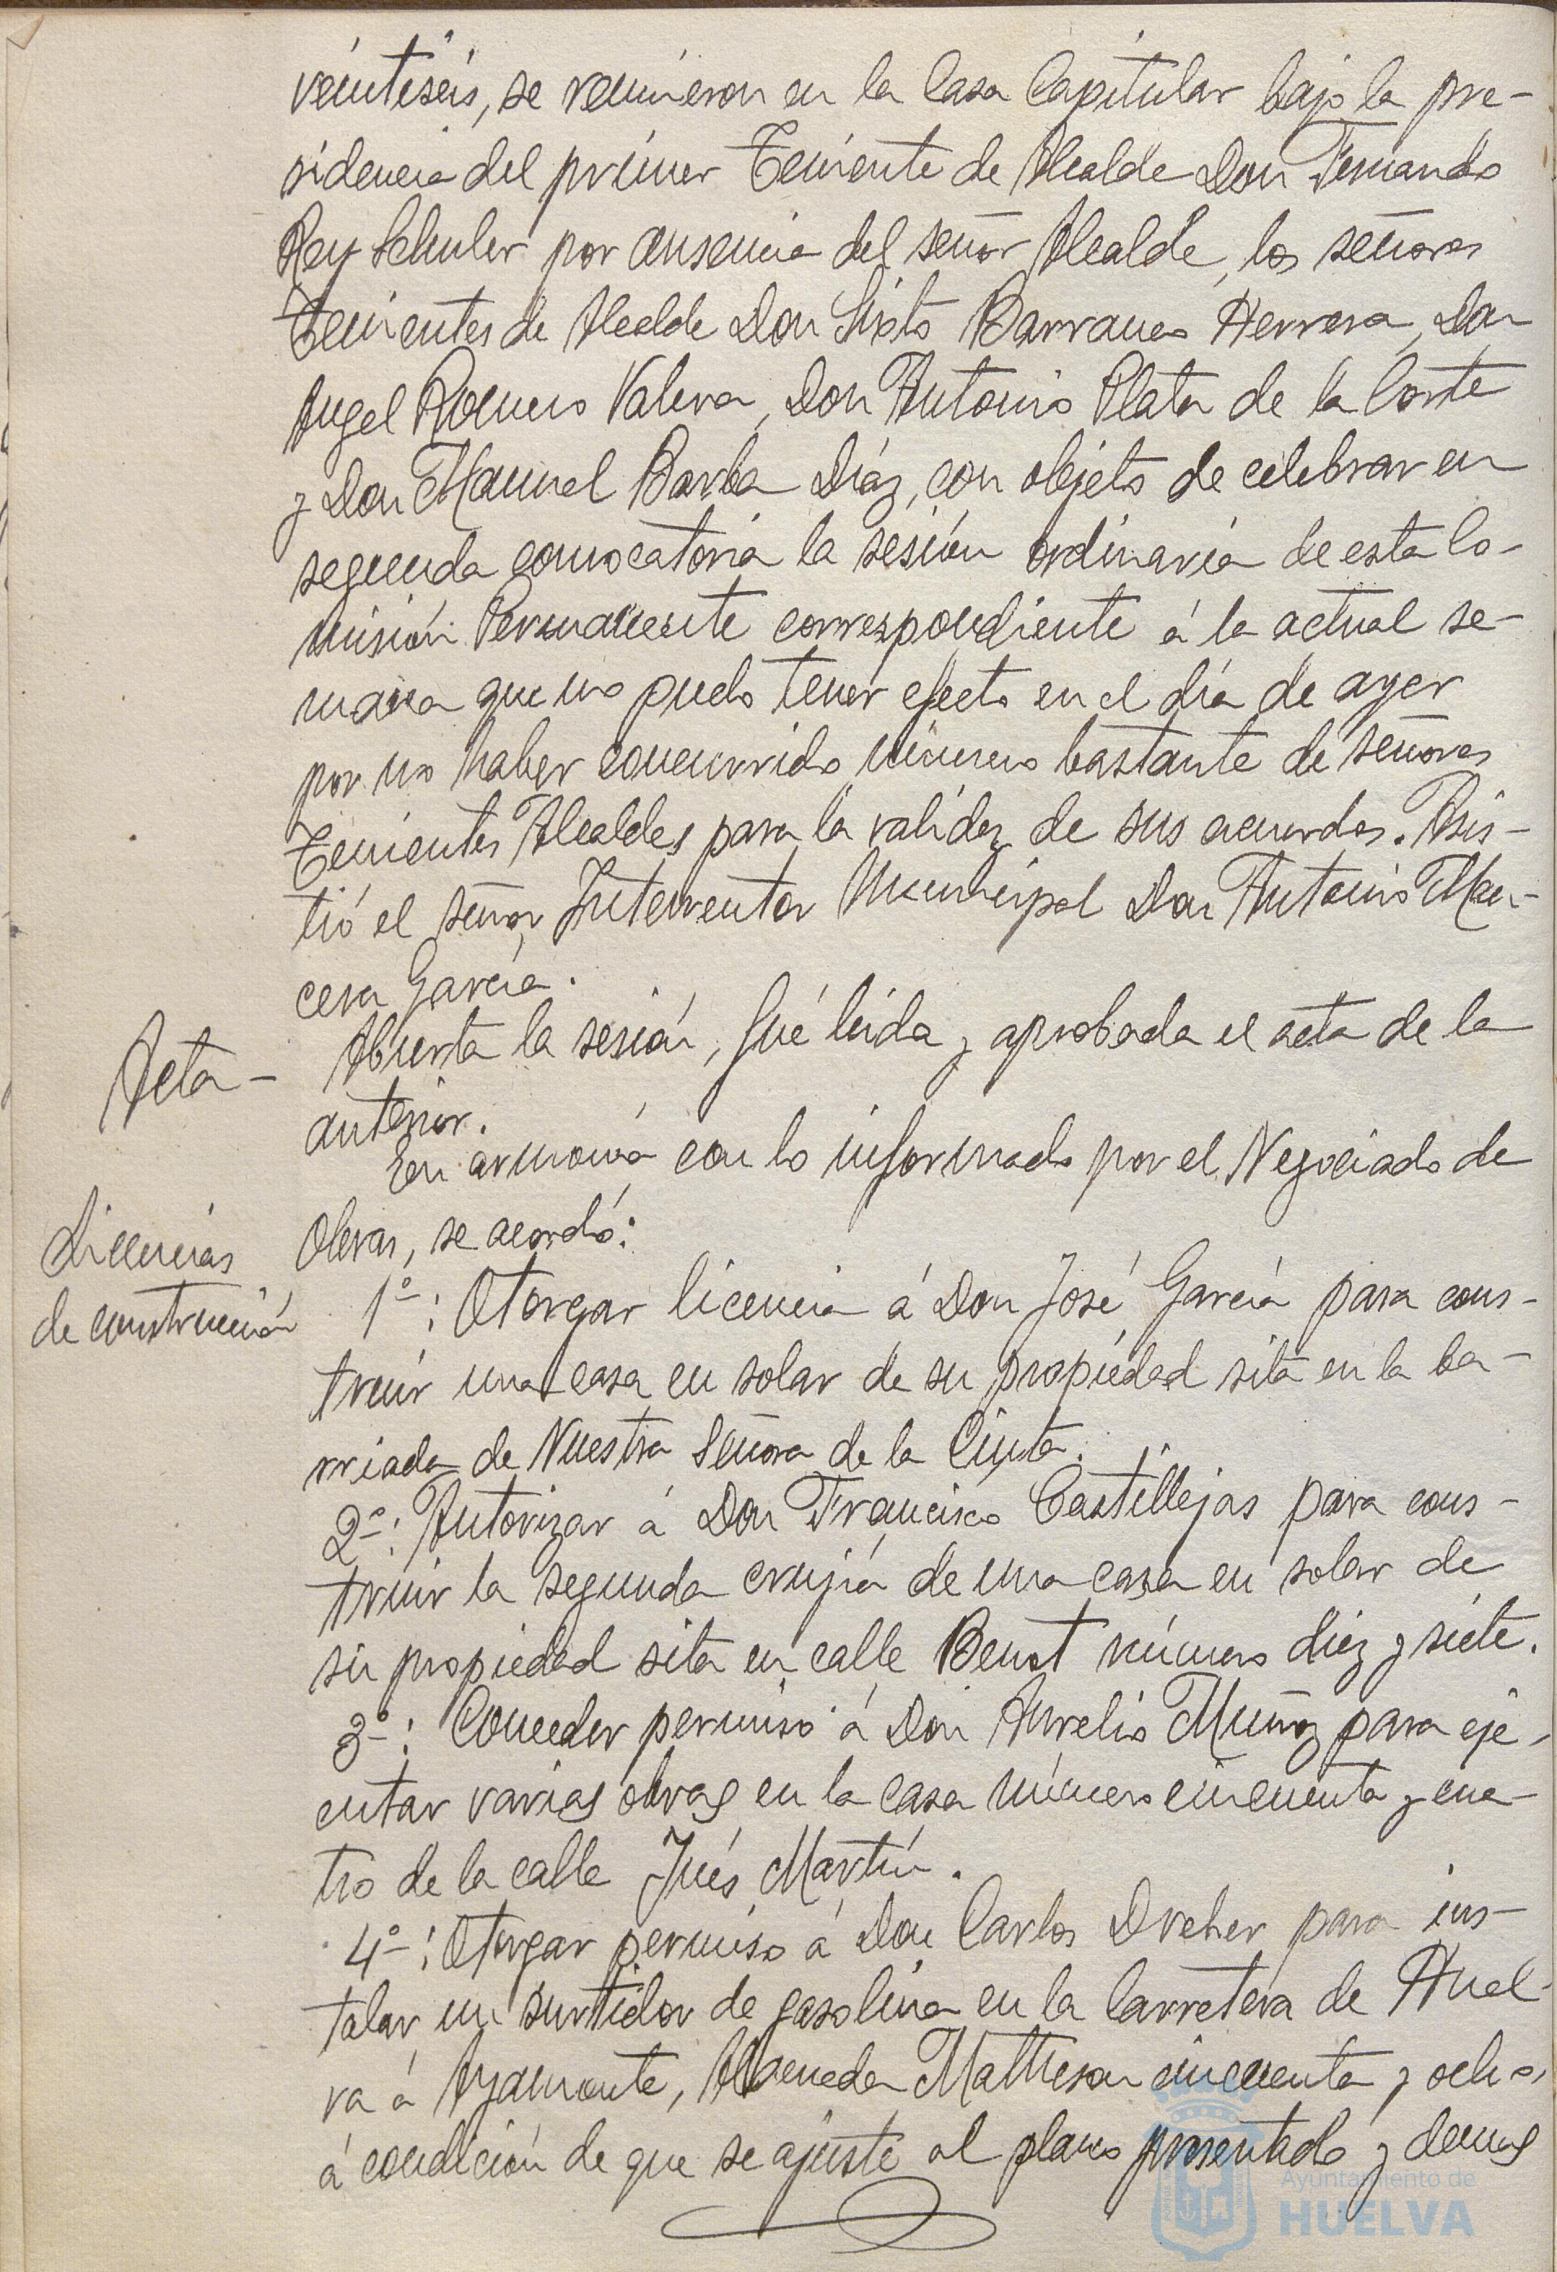 veintiséis, se reunieron en la Casa Capitular bajo la pre-
sidencia del primer Teniente de Alcalde Don Fernando
Rey Schuler por ausencia del señor Alcalde, los señores
Tenientes de Alcalde Don Sixto Barranco Herrera, Don
Angel Romero Valera, Don Antonio Plata de la Corte
y Don Manuel Barba Díaz, con objeto de celebrar en
segunda convocatoria la sesión ordinaria de esta Co-
misión Permanente correspondiente á la actual se-
mana que no pudo tener efecto en el día de ayer
por no haber concurrido número bastante de señores
Tenientes Alcaldes para la validez de sus acuerdos. Asis-
tió el señor Interventor Municipal Don Antonio Man-
cera García.
Acta - Abierta la sesión, fué leida y aprobada el acta de la
anterior.
En armonía con lo informado por el Negociado de
Licencias Obras, se acordó:
de construcción 1º: Otorgar licencia á Don José García para cons-
truir una casa en solar de su propiedad sita en la ba-
rriada de Nuestra Señora de la Cinta.
2º: Autorizar á Don Francisco Castillejas para cons-
truir la segunda crujía de una casa en solar de
su propiedad sita en calle Benot número diez y siete.
3º: Conceder permiso á Don Aurelio Muñoz para eje-
cutar varias obras en la casa número cincuenta y cua-
tro de la calle Inés Martín.
4º: Otorgar permiso á Don Carlos Dreher para ins-
talar un surtidor de gasolina en la Carretera de Huel-
va á Ayamonte, Alameda Matheson cincuenta y ocho,
á condición de que se ajuste al plano presentado y demas
Ayuntamiento de
HUELVA